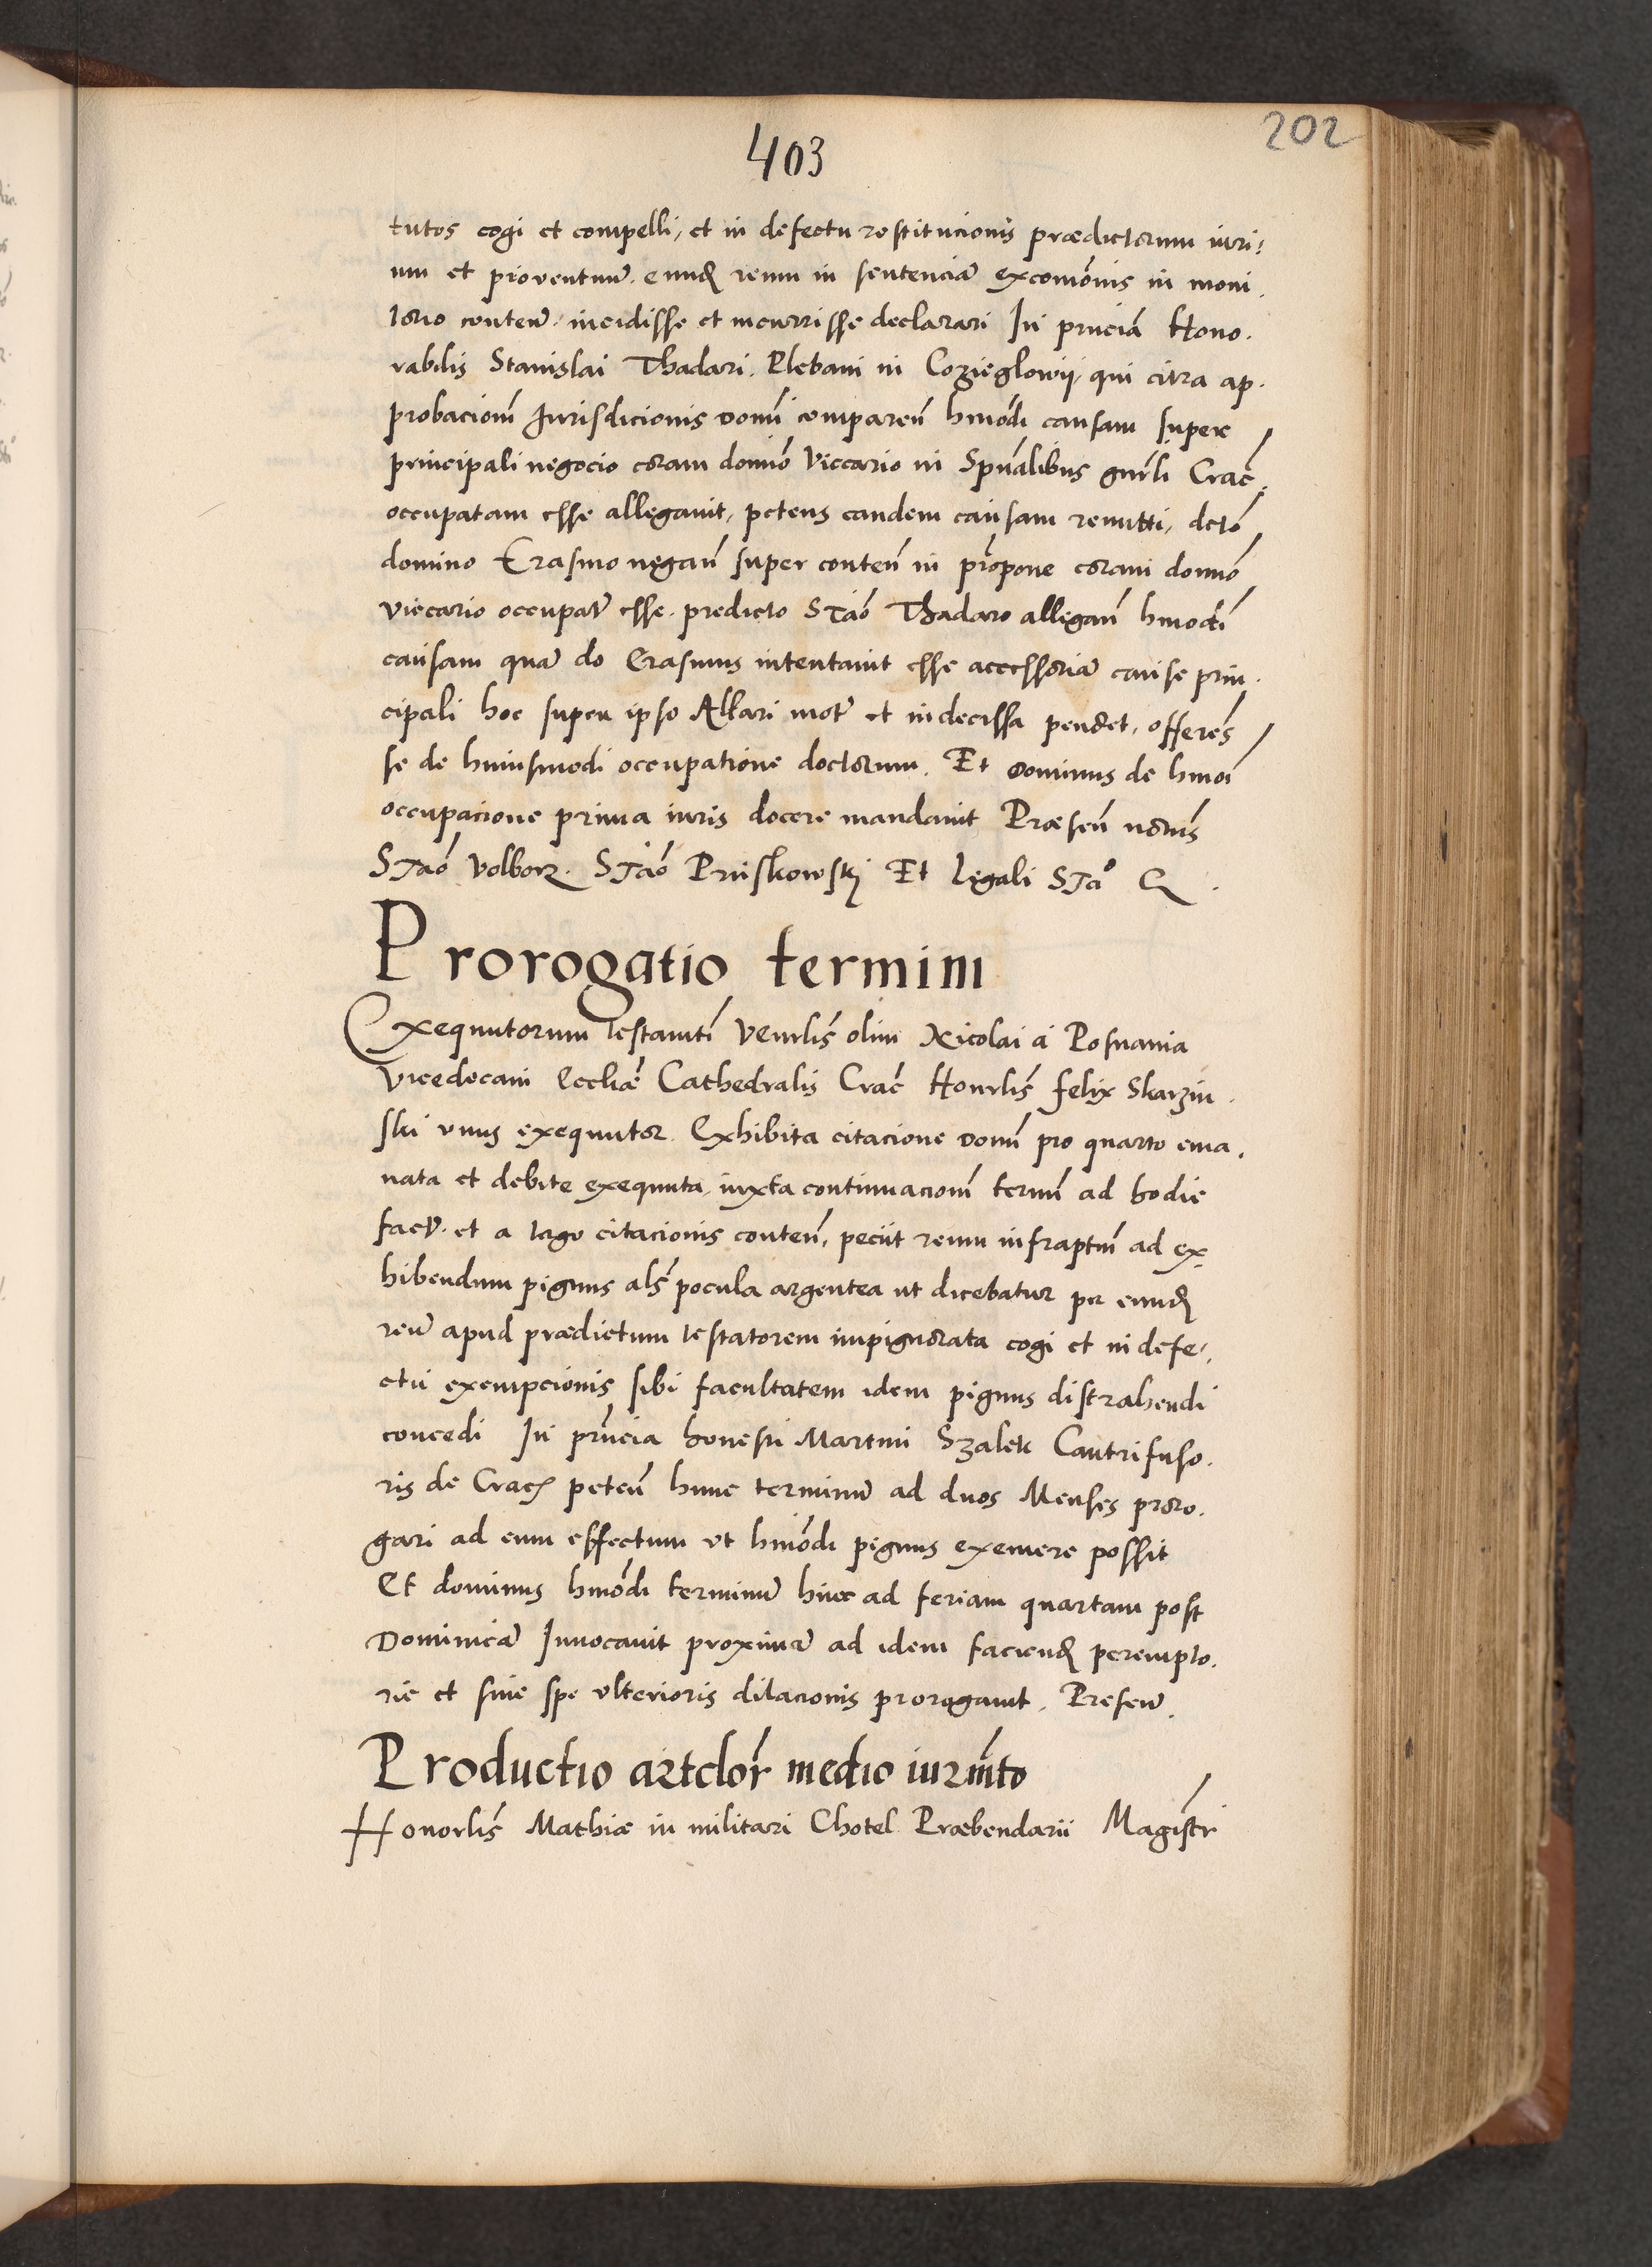 202
403
tutos cogi et compelli, et in defectu restitucionis prædictorum iuri:
um et proventuū. eundē reum in sentenciā excomōnis in moni.
torio conteñ. incidisse et incurrisse declarari In pn̄ciā Hono.
rabilis Stanislai Thadari. Plebani in Cozieglowij, qui citra ap.
probacionē Jurisdicionis domī compareñ hmōdi causam super
principali negocio coram domīo Viccario in Spūalibus gn̄rli Crac̄.
occupatam esse allegavit, petens eandem causam remitti, dctō
domino Erasmo negañ super conteñ in prōpone coram domīo
Viecario occupat̄ esse. predicto STāo Thadaro allegañ hmodī
causam quā do Erasmus intentavit esse accessoriā cause prin.
cipali hoc super ipso Altari mot̄ et indecissa pendet, offerēs
se de huiusmodi occupatione doctorum. Et dominus de hmōi
occupacione prima iuris docere mandavit Præseñ notis
STāo Volborz. STāo Pruskowskj Et legali STa° Q.
Prorogatio termini
Exequutorum testamtī Venrlis̄ olim Nicolai a Posnania
Vicedecani Eccliæ Cathedralis Crac̄ Honrlis̄ felix Skarzin.
ski unus exequutor. Exhibita citacione domī pro quarto ema.
nata et debite exequuta, iuxta continuacionē termī ad hodie
fact̄. et a tergo citacionis conteñ, peciit reum infraptm̄ ad ex
hibendum pignus als̄ pocula argentea ut dicebatur per eundē
reū apud prædictum testatorem impignorata cogi et in defe,
ctu exempcionis sibi facultatem idem pignus distrahendi
concedi In prn̄cia honesti Martini Szalek Cantrifuso.
ris de Crac̄ peteñ hunc terminū ad duos Menses proro.
gari ad eum effectum ut hmōdi pignus exemere possit
Et dominus hmōdi terminū hinc ad feriam quartam post
Dominicā Invocavit proximā ad idem faciendē perempto.
rie et sine spe ulterioris dilacionis prorogavit. Preseñ.
Productio artclor̄ medio iurm̄to
Honorlis̄ Mathiæ in militari Chotel Præbendarii Magistr̄i